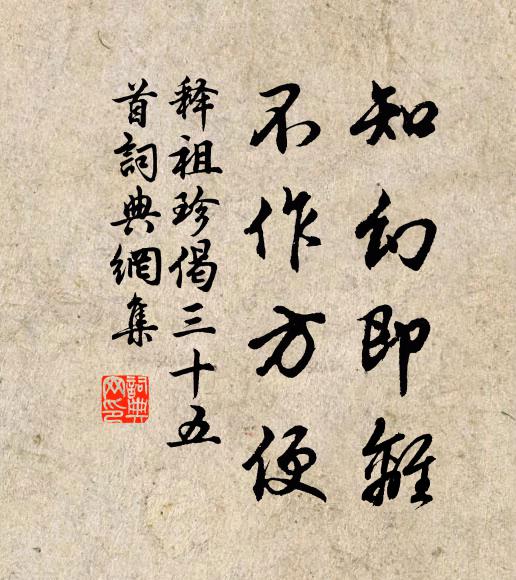 知幻即離
不作方便
释祖珍偈三十五
首詞典網集
詞典
网印